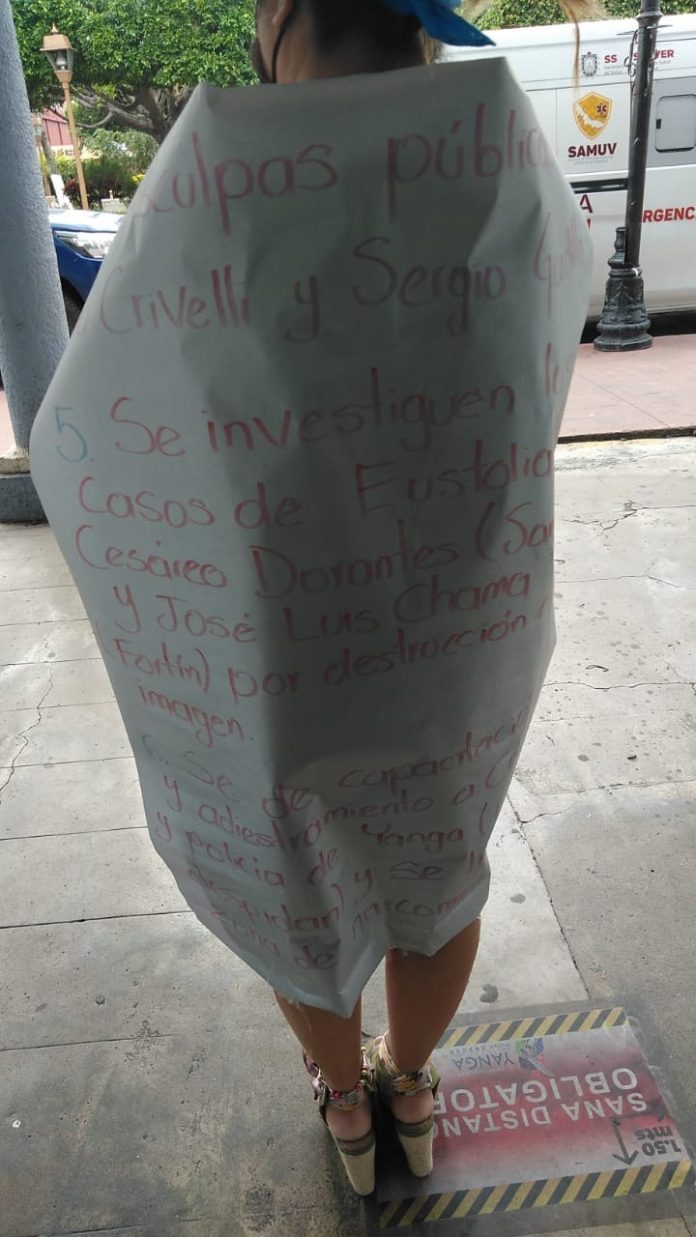 SS SESVER
SAMUV
RGENC
culpas públic
Crivelli y Sergio
5. Se investiguen l
casos de Eustolia
Cesáreo Dorantes (Sa
y José Luis Chama
(Fortín) por destrucción
imagen.
6. Se de capacitaci
y adiestramiento a
y policía de Yanga (
despidan) y se l
zona de narcom
YANGA
SANA DISTANC
OBLIGATOR
1.50
mts